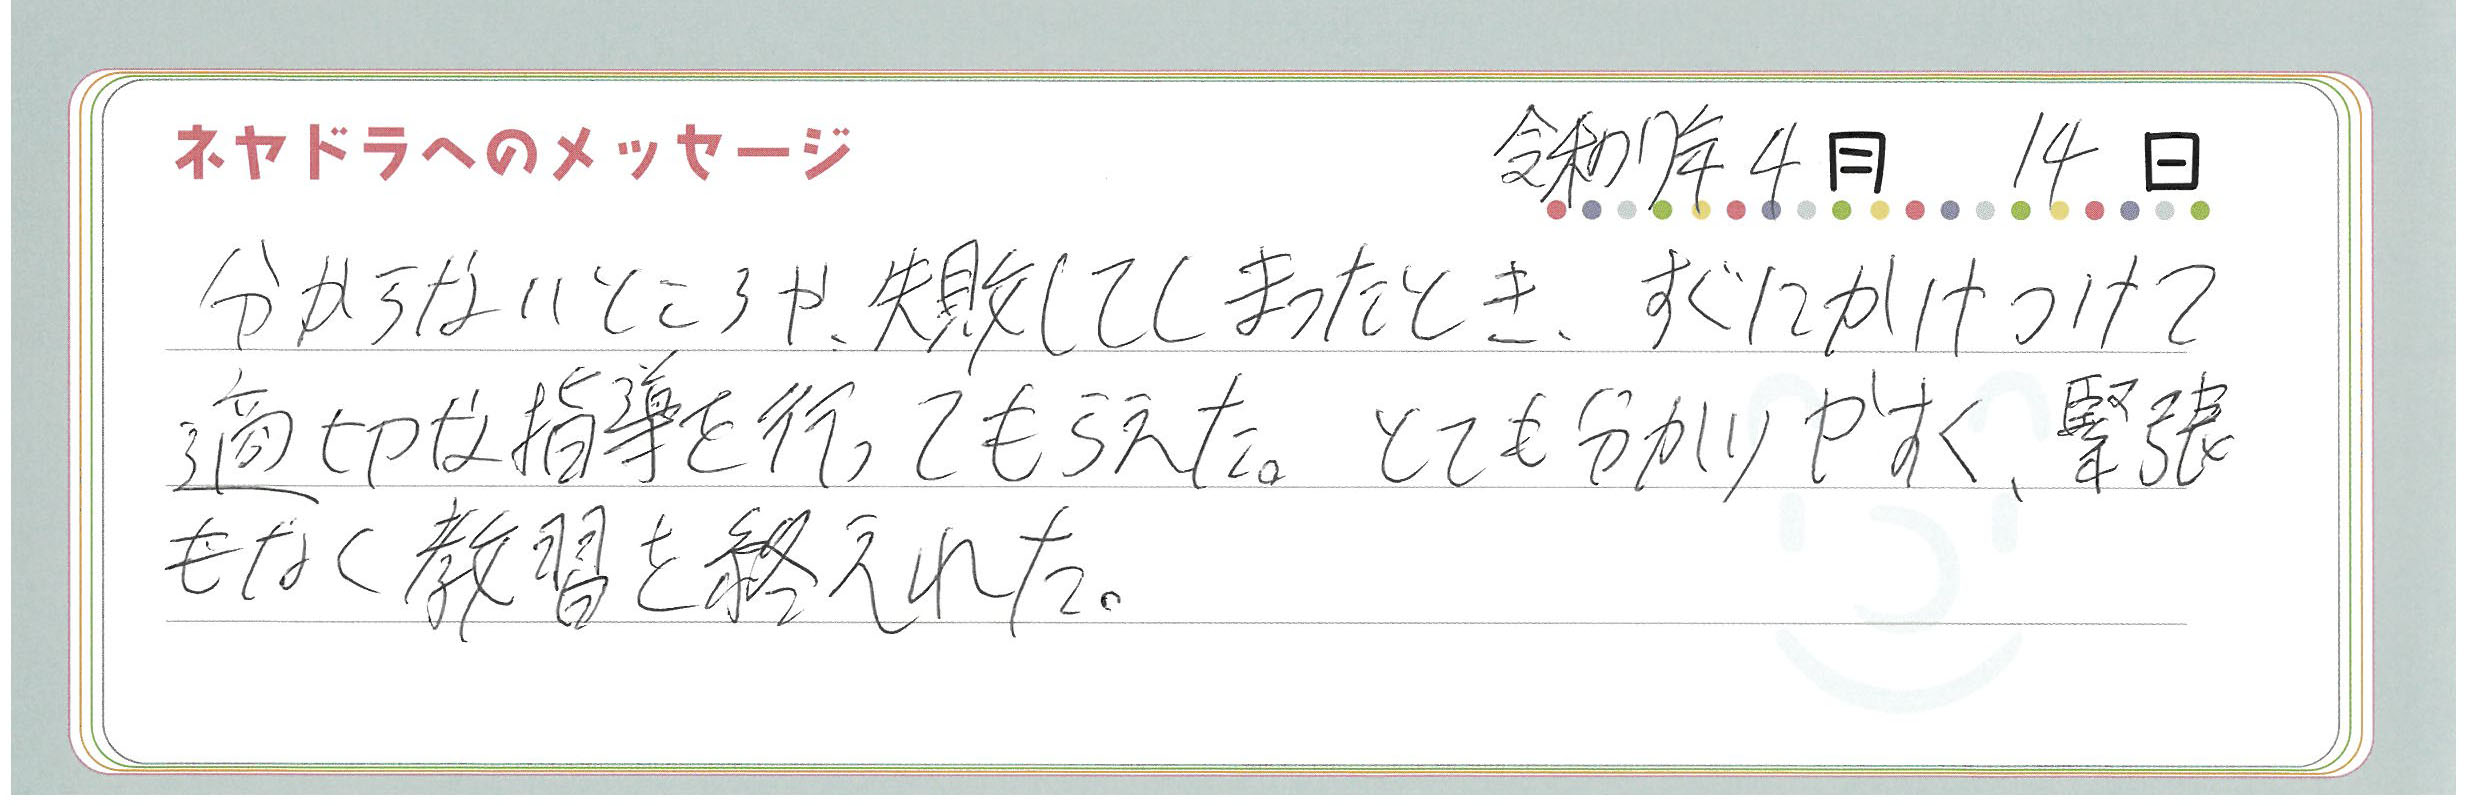 ネヤドラへのメッセージ
令和7年4月14日
分からないところや、失敗してしまったとき、すぐにかけつけて
適切な指導を行ってもらえた。とても分かりやすく、緊張
もなく教習を終えれた。